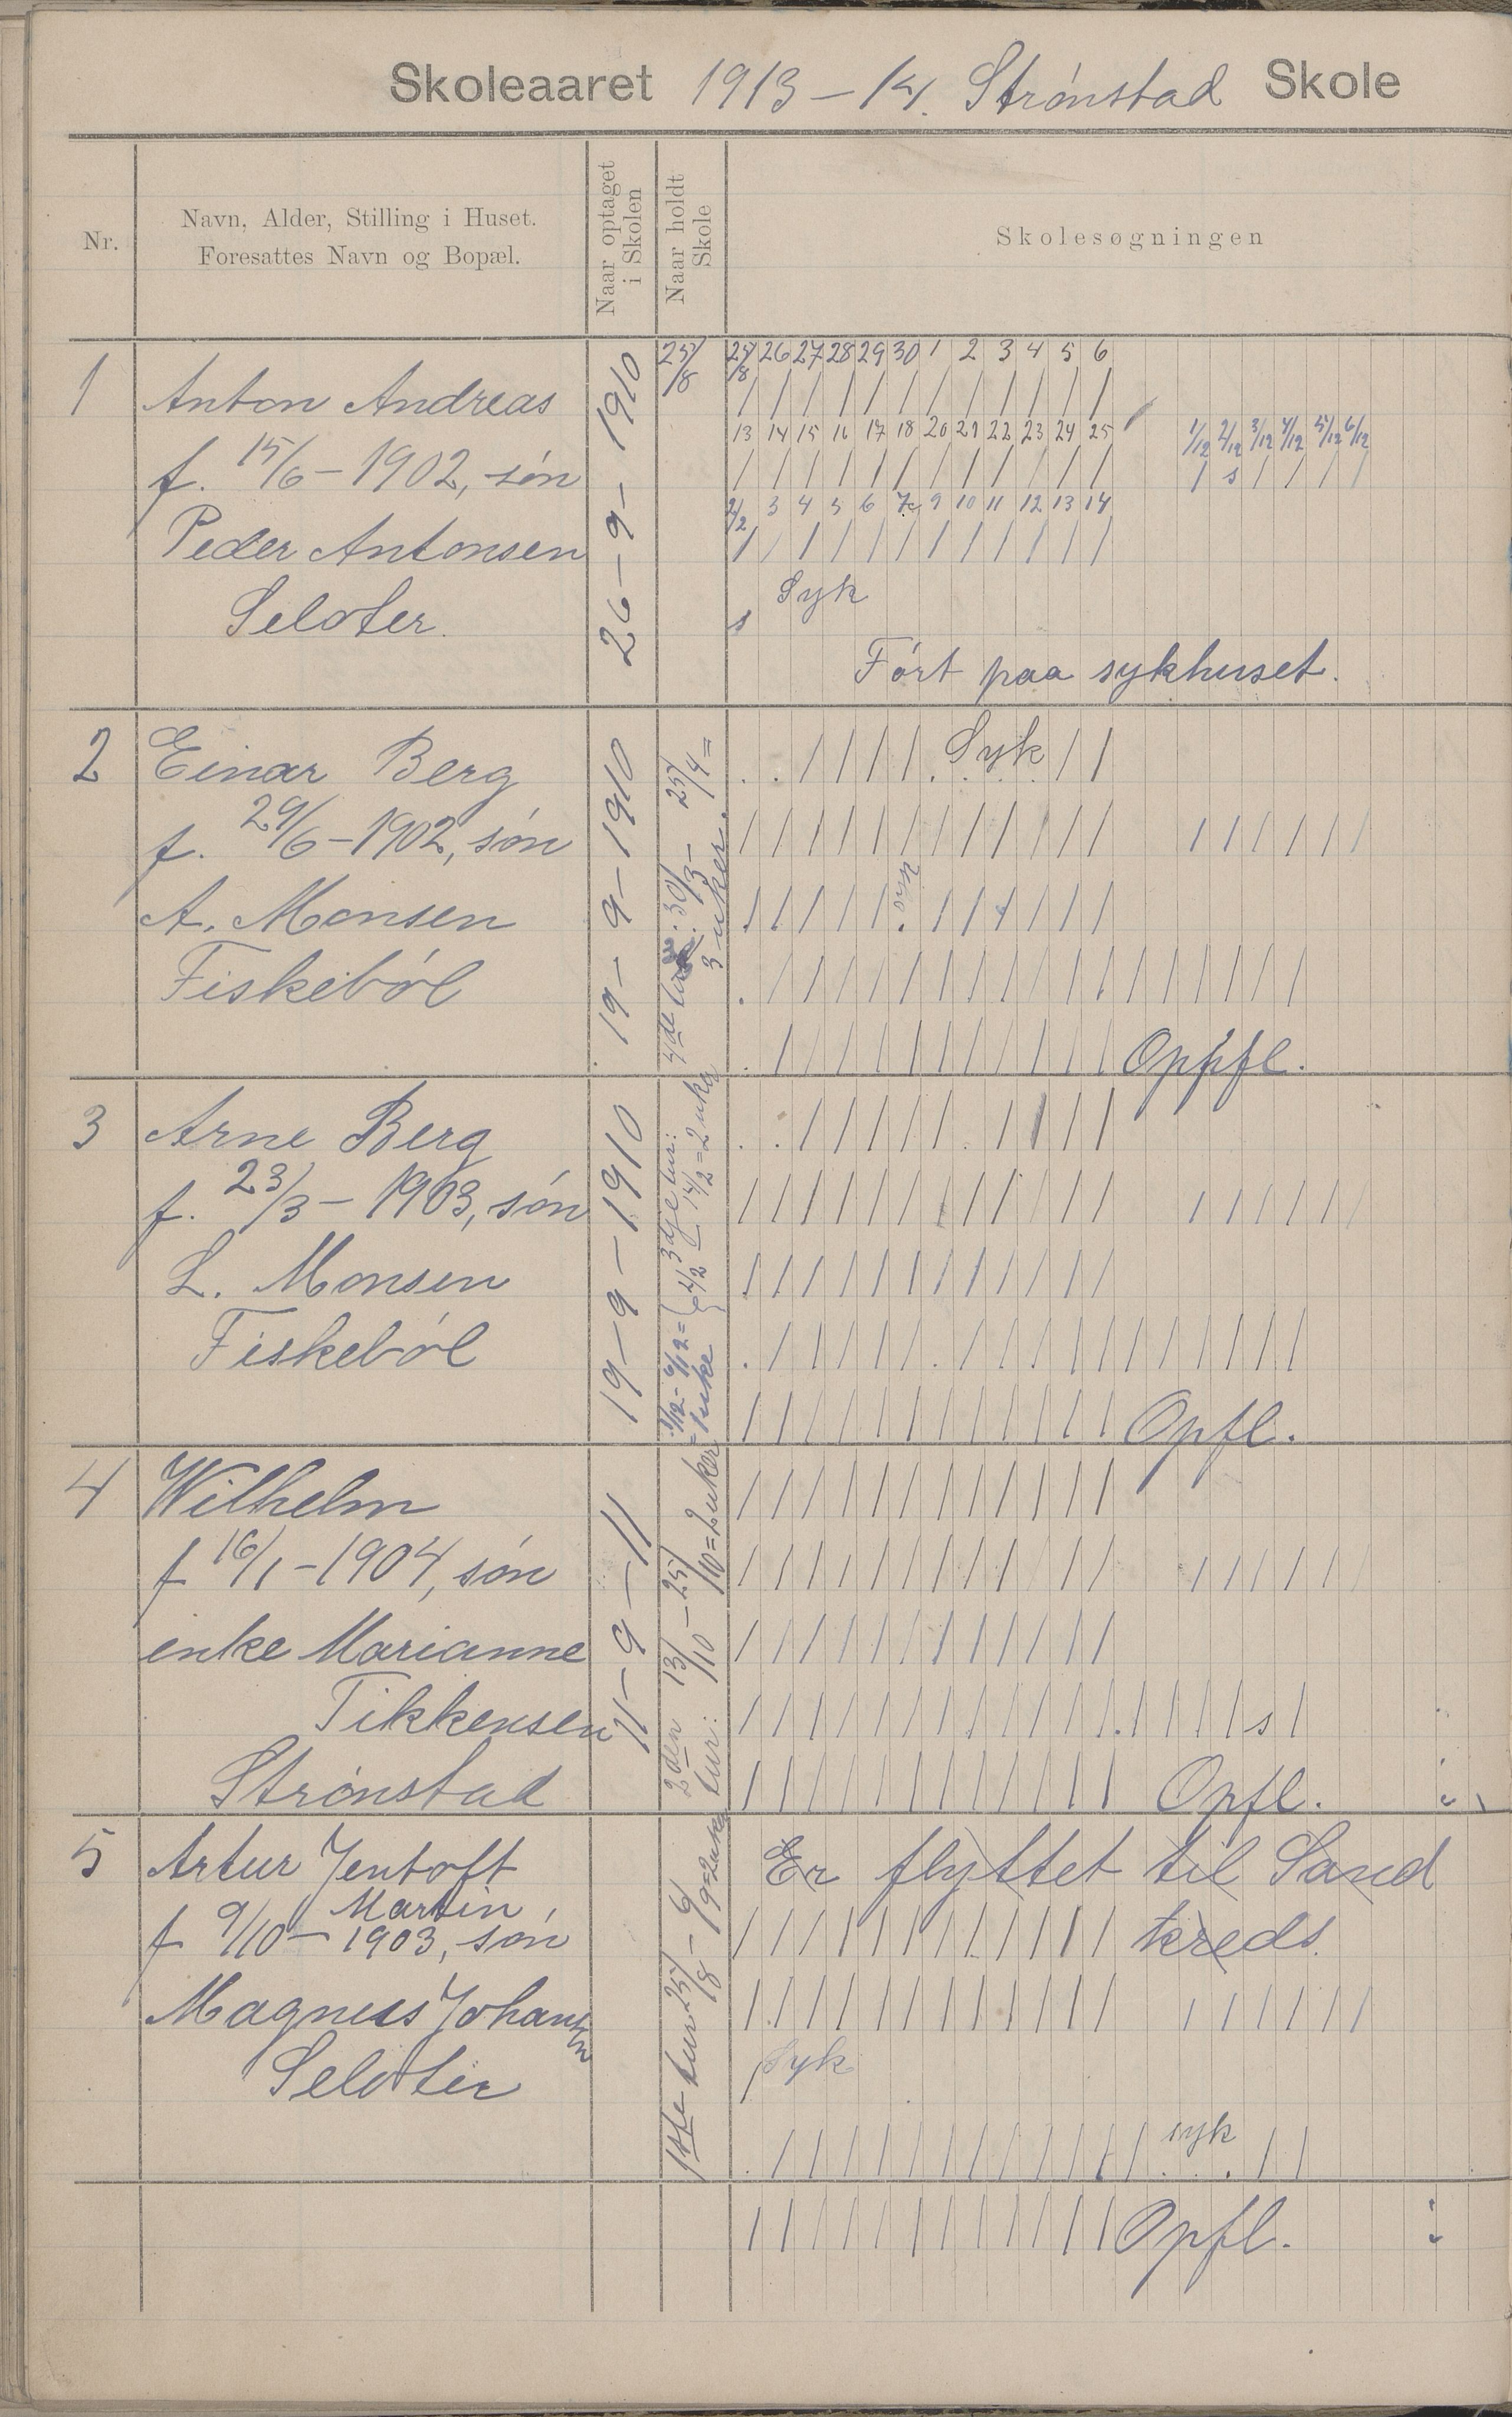 Skoleaaret 1913 – 14. Strønstad Skole
Nr.
Navn, Alder, Stilling i Huset.
Foresattes Navn og Bopæl.
Naar optaget
i Skolen
Naar holdt
Skole
Skolesøgningen
1
Anton Andreas
f. 15/6 – 1902, søn
Peder Antonsen
Seloter.
26 – 9 – 1910
25/8
25/8 26 27 28 29 30 1 2 3 4 5 6
/ / / / / / / / / / / /
13 14 15 16 17 18 20 21 22 23 24 25 1/12 2/12 3/12 4/12 5/12 6/12
/ / / / / / / / / / / / / s / / / /
2/2 3 4 5 6 7 9 10 11 12 13 14
/ / / / / / / / / / / /
Syk
s
Ført paa sykhuset.
2
Einar Berg
f. 29/6 – 1902, søn
A. Monsen
Fiskebøl
19 – 9 – 1910
4de tur: 30/3 – 25/4 =
3 uker.
. . / / / / . Syk / /
/ / / / / / / / / / / / / / / / / /
/ / / / / . / / / / / /
. / / / / / / / / / / / / / / / / /
. / / / / / / / / / / / Oppfl.
3
Arne Berg
f. 23/3 – 1903, søn
L. Monsen
Fiskebøl
19 – 9 – 1910
1/12 – 6/12 =
1 uke
3dje tur:
2/2 – 14/2 = 2 uker
. . / / / / / . / / / /
/ / / / / / / / / / / / / / / / / /
/ / / / / / / / / / / /
. / / / / / . / / / / / / / / / / /
/ / / / / / / / / / / / Opfl.
4
Wilhelm
f 16/1 – 1904, søn
enke Marianne
Tikkensen
Strønstad
11 – 9 – 11
2den tur: 13/10 – 25/10 = 2 uker
/ / / / / / / / / / / /
/ / / / / / / / / / / / / / / / / /
/ / / / / / / / / / / /
/ / / / / / / / / / / . / / / / s /
/ / / / / / / / / / / / Opfl.
5
Artur Jentoft
Martin
f 9/10 – 1903, søn
Magnus Johansen
Seloter
1ste tur 25/8 – 6/9 = 2 uker
Er flyttet til Sand
/ / / / / / / / / / / / kreds.
/ / / / / / / / / / / / / / / / / /
/ Syk
syk
. / / / / / / / / / / / / . . / /
/ / / / / / / / / / / / Opfl.